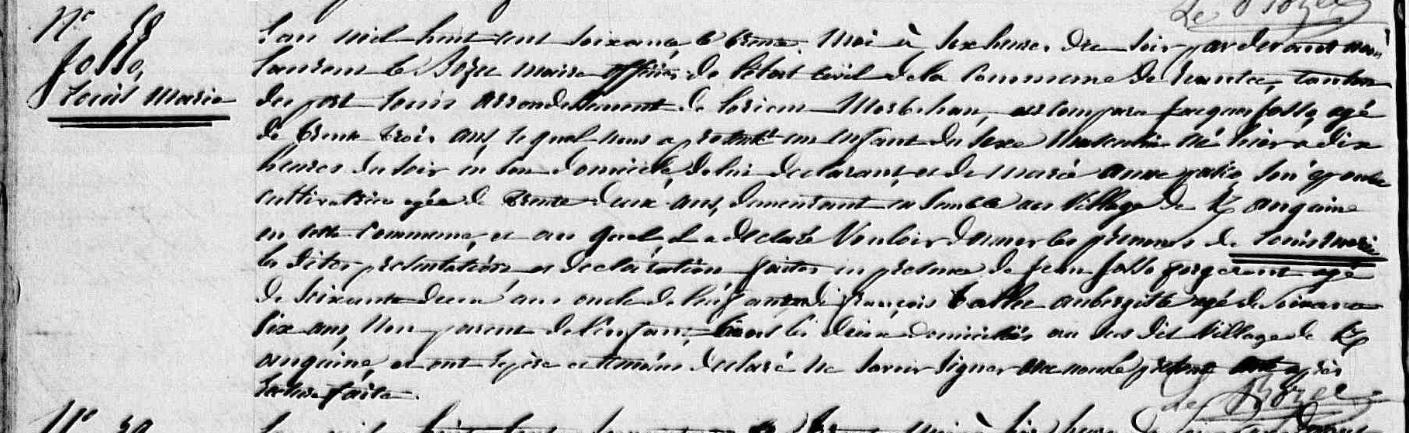 Le
N° 58
Josso,
Louis Marie
L'an mil huit cent soixante, le trente Mai à six heures du soir par devant nous
Laurent Le maire officier de l'état civil de la Commune de canton
du port Louis arrondissement de Lorient Morbihan, est comparu Jacques Josso, agé
de trente trois ans, lequel nous a présenté un Enfant du Sexe Masculin né hier a dix
heures du soir en son domicile, de lui déclarant, et de Marie Anne son épouse
cultivatrice agée de trente deux ans, demeurant ensemble au Village de K anguine
en cette Commune, et au quel il a déclaré Vouloir donner les prénoms de Louis marie
les dites présentation et déclaration faites en présence de Jean Josso forgeront agé
de soixante deux ans oncle de l'enfant et de françois aubergiste agé de soixante
six ans, Non parent de l'enfant, tous les deux domiciliés au sus dit Village de K
anguine, et ont le père et témoins déclaré ne savoir Signer le présent acte après
lecture faite.
Le
N° 59
L'an mil huit cent soixante le trente Mai à six heures du soir par devant